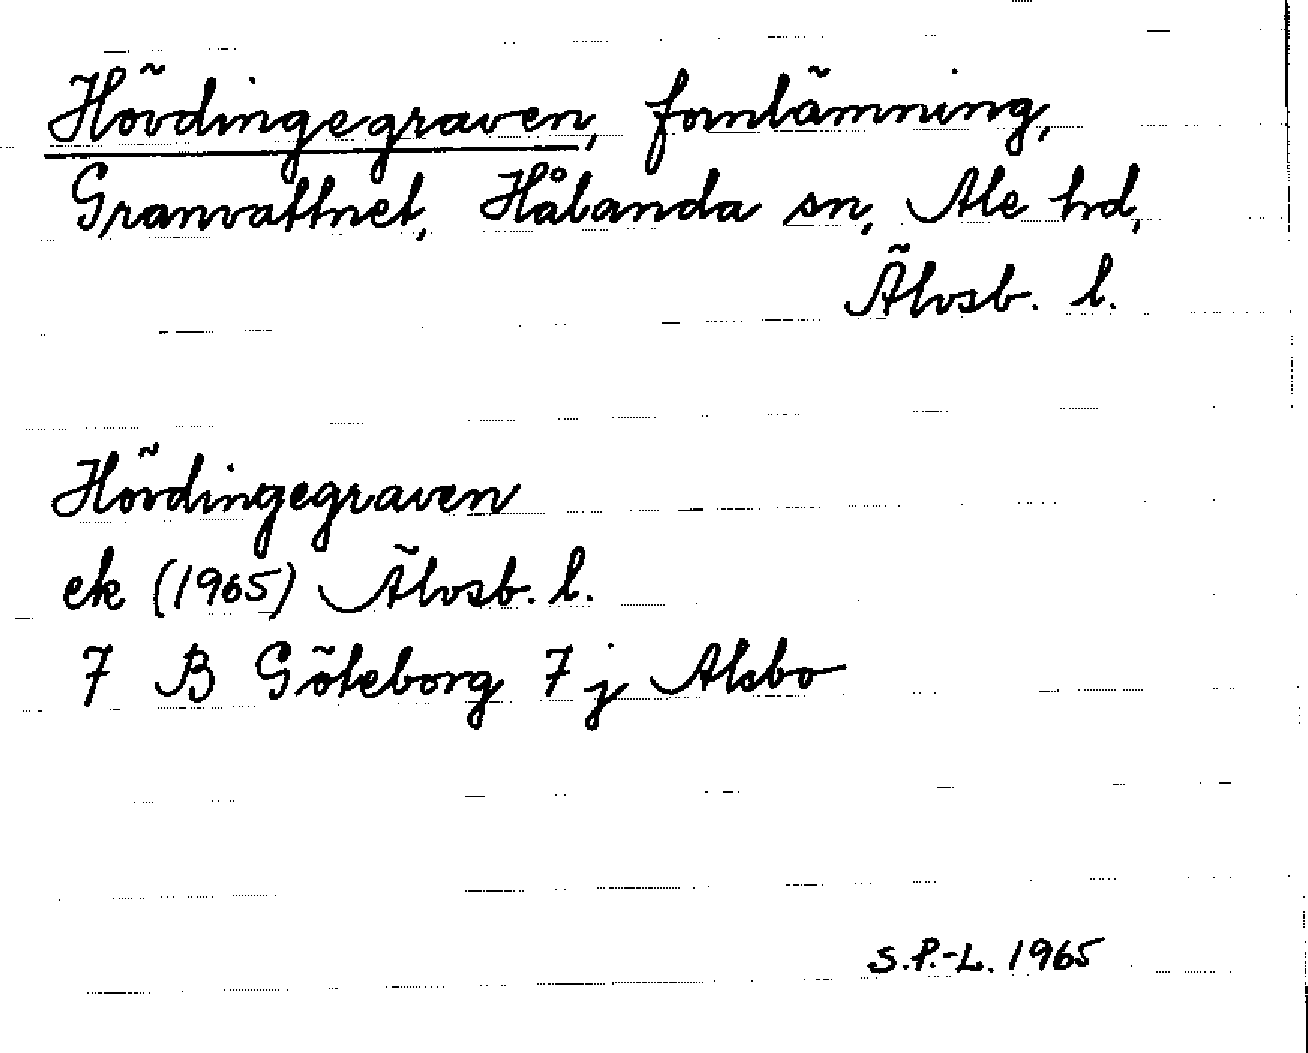 Hövdingegraven, fornlämning,
Granvattnet, Hålanda sn, Ale hd,
Älvsb. l.
Hövdingegraven
ek (1965) Älvsb. l.
7 B Göteborg 7 j Alsbo
S.P.-L. 1965